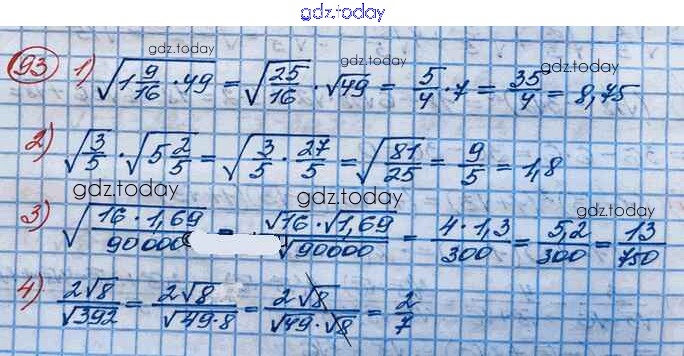 gdz.today
93 1) √(1 9/16 · 49) = √(25/16) · √49 = 5/4 · 7 = 35/4 = 8,75
gdz.today gdz.today
2) √(3/5) · √(5 2/5) = √(3/5 · 27/5) = √(81/25) = 9/5 = 1,8
gdz.today gdz.today
3) √((16 · 1,69)/90000) = (√16 · √1,69)/√90000 = (4 · 1,3)/300 = 5,2/300 = 13/750
4) 2√8/√392 = 2√8/√(49·8) = 2√8/(√49 · √8) = 2/7